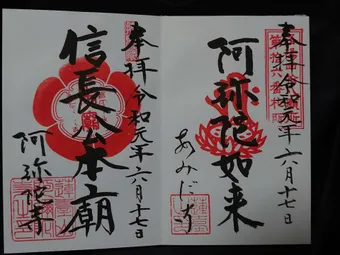 奉拝 令和元年六月十七日
阿弥陀如来
あみだ寺
奉拝 令和元年六月十七日
信長公本廟
阿弥陀寺